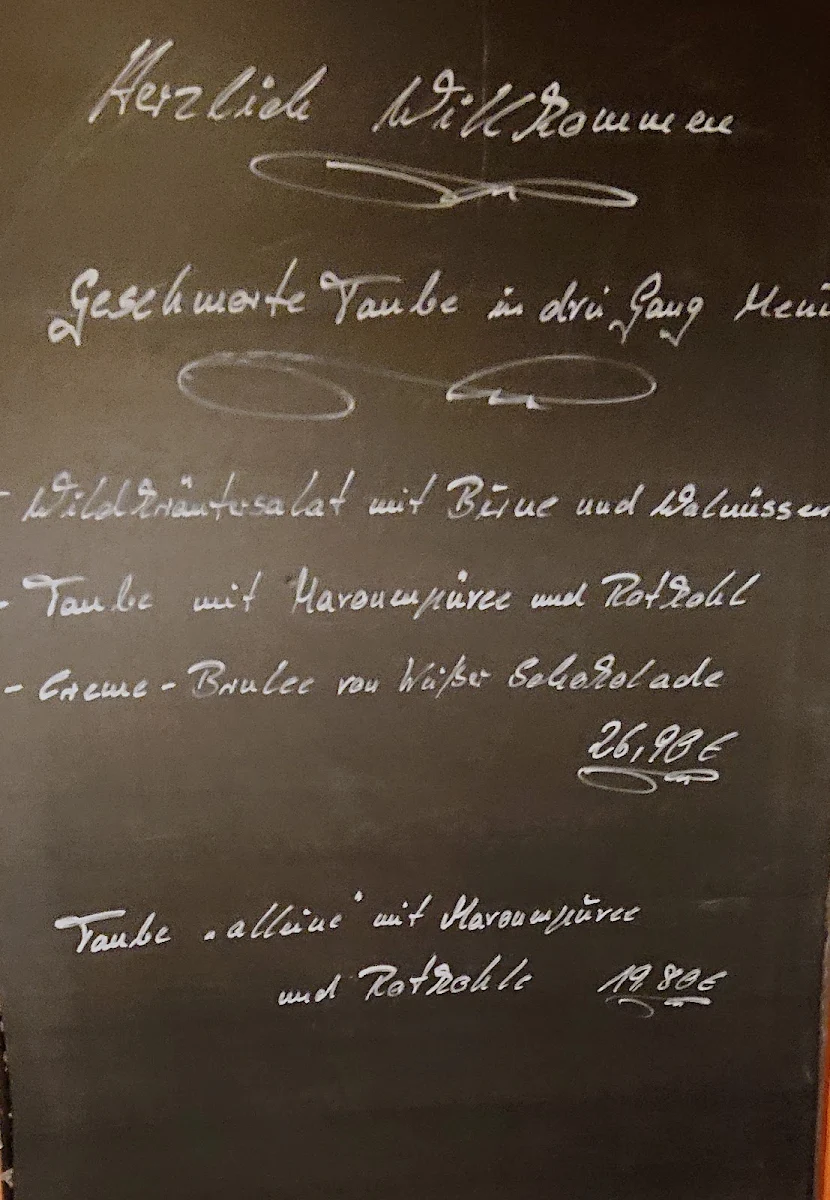 Herzlich Willkommen
Geschmorte Taube in drei Gang Menü
- Wildkräutersalat mit Birne und Walnüssen
- Taube mit Maronenpüree und Rotkohl
- Creme-Brulee von Weißer Schokolade
26,90€
Taube „alleine" mit Maronenpüree
und Rotkohle 19,80€